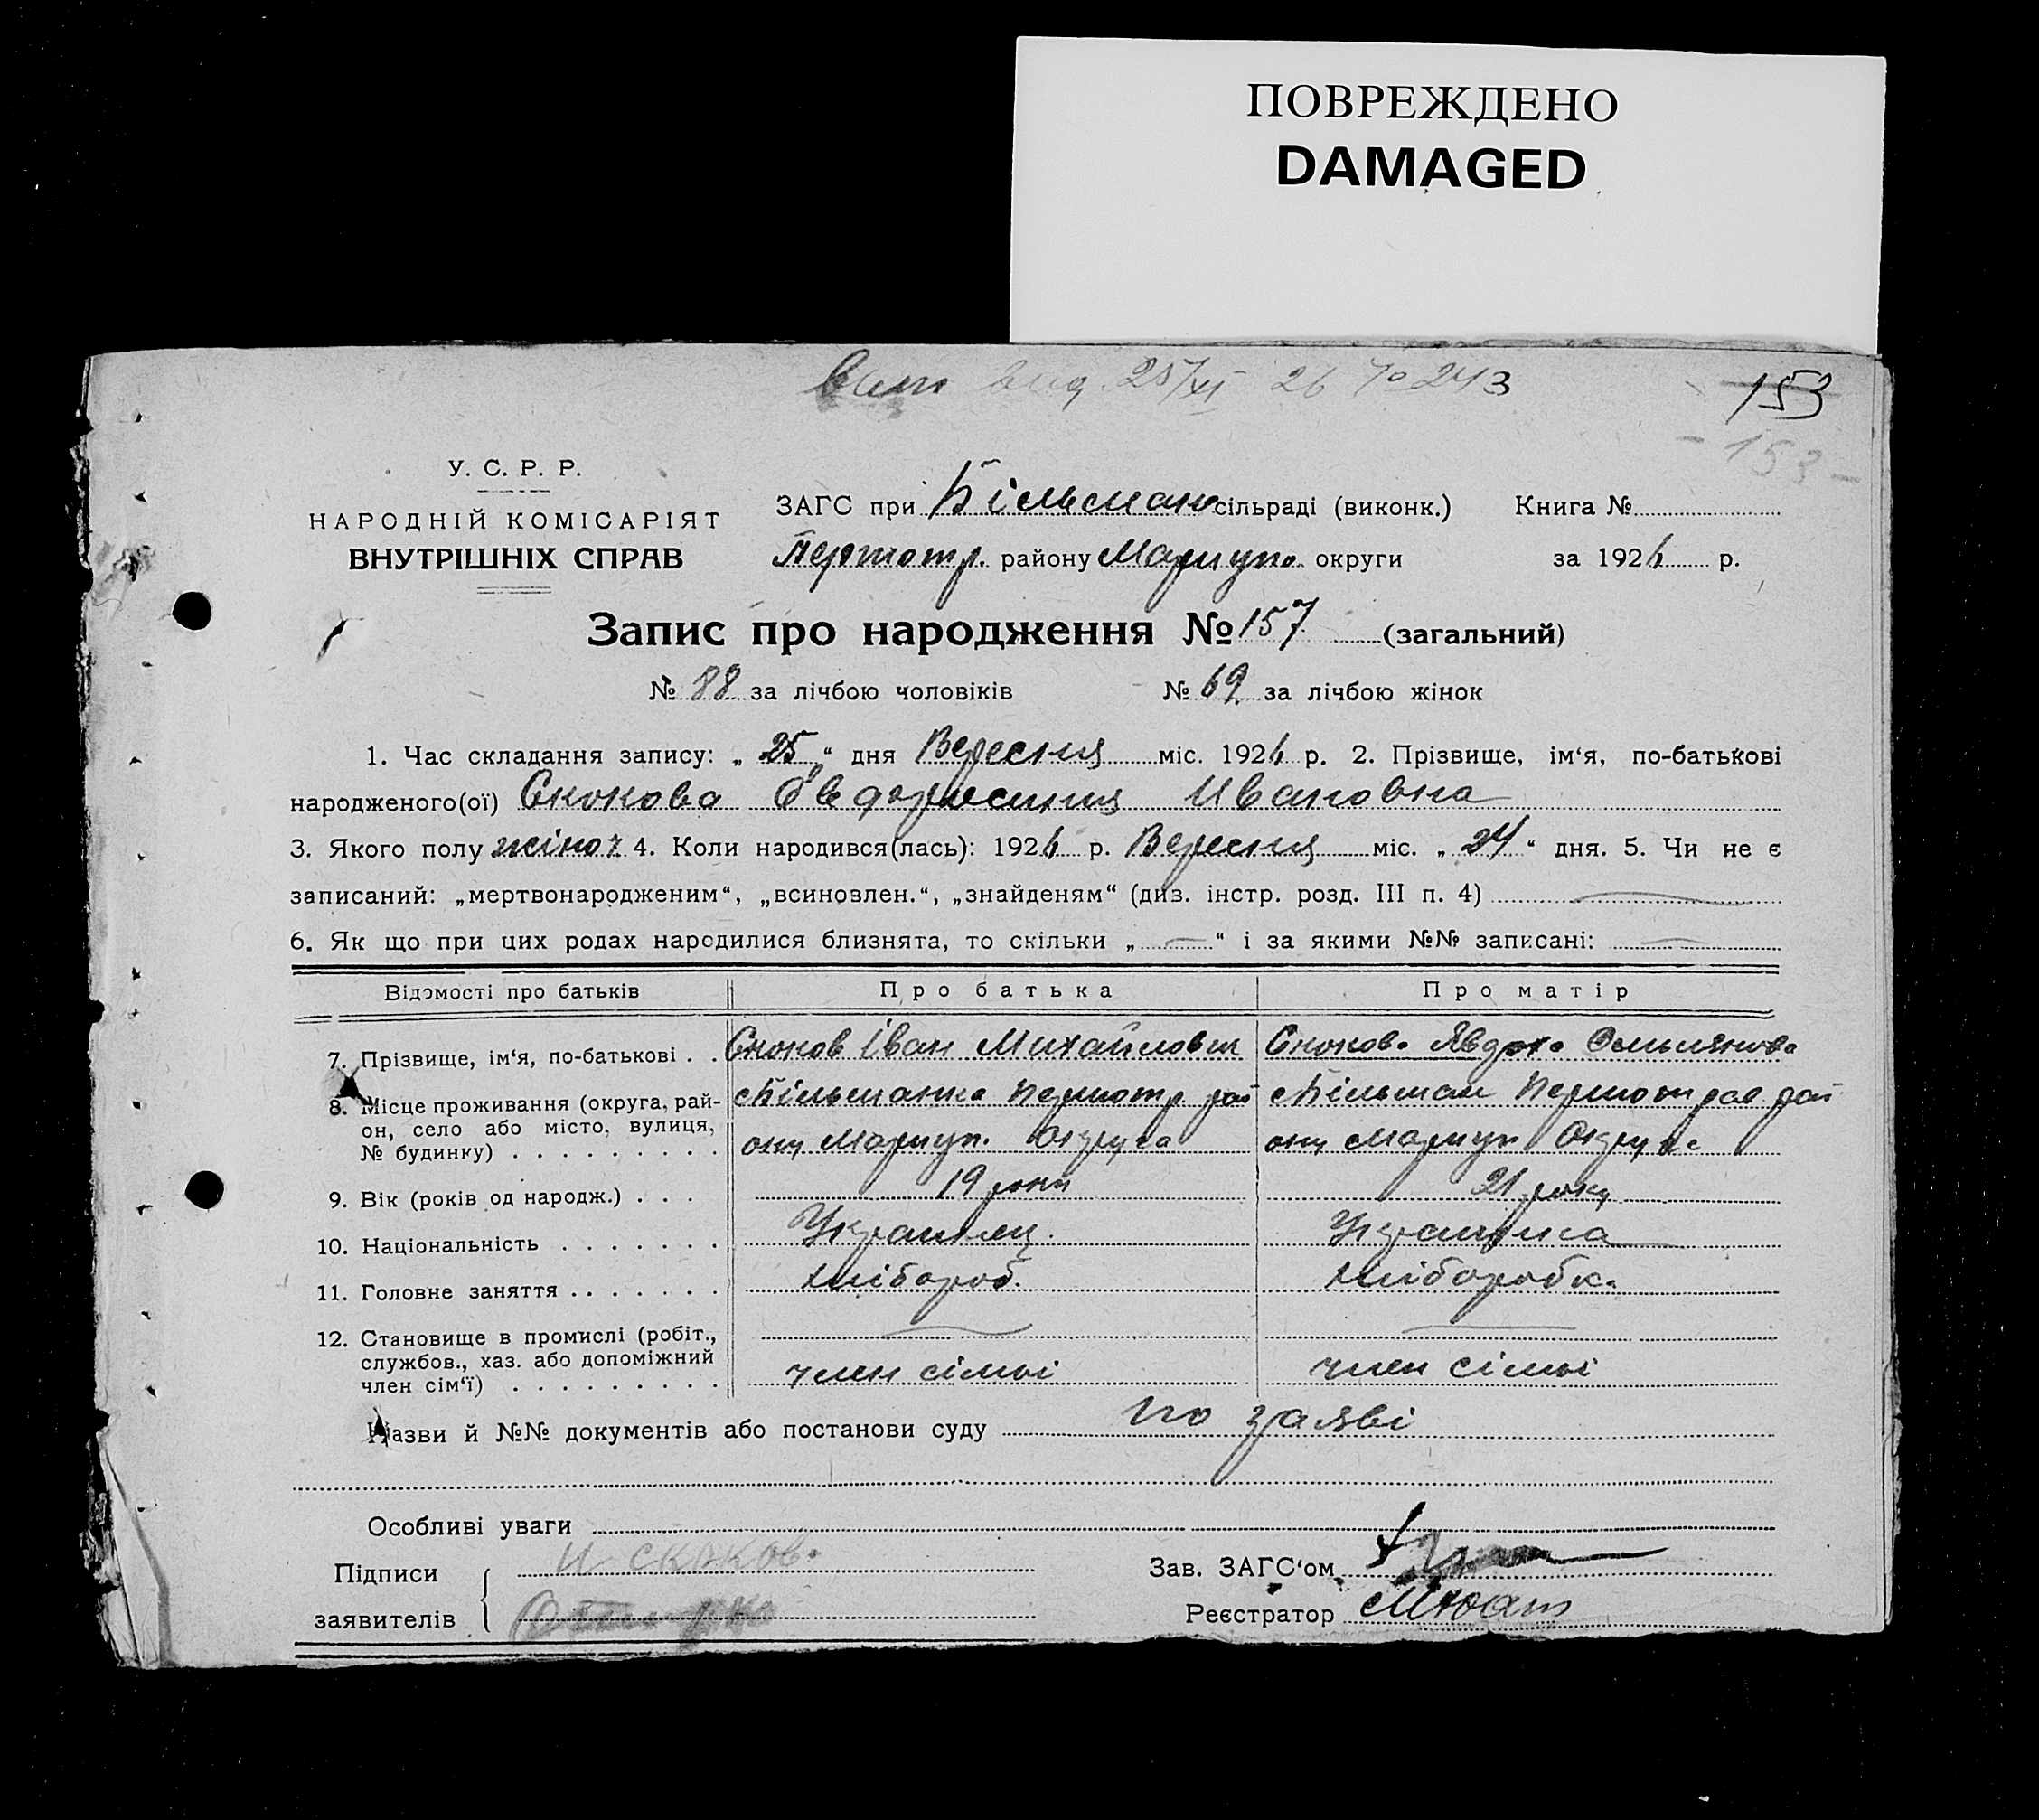 ПОВРЕЖДЕНО
DAMAGED
вид. 25/XI 26 № 243
153
- 153 -
У. С. Р. Р.
НАРОДНІЙ КОМІСАРІЯТ
ВНУТРІШНІХ СПРАВ
ЗАГС при Більман сільраді (виконк.) Книга №
району Мариуп. округи за 1926 р.
Запис про народження № 157 (загальний)
№ 88 за лічбою чоловіків № 69 за лічбою жінок
1. Час складання запису: „ 25 “ дня Вересня міс. 1926 р. 2. Прізвище, ім‘я, по-батькові
народженого(ої) Скокова Ивановна
3. Якого полу жіноч. 4. Коли народився(лась): 1926 р. Вересня міс. „ 24 “ дня. 5. Чи не є
записаний: „мертвонародженим“, „всиновлен.“, „знайденям“ (див. інстр. розд. III п. 4) —
6. Як що при цих родах народилися близнята, то скільки „ — “ і за якими №№ записані: —
Відомості про батьків Про батька Про матір
7. Прізвище, ім‘я, по-батькові . . Скоков Іван Михайлович Скокова Явдоха Омельянова
8. Місце проживання (округа, рай-
он, село або місто, вулиця,
№ будинку) . . . . . . . . .
Більманка Пермотр рай
ону Мариуп. Округа
Більман рай
ону Мариуп Округа
9. Вік (років од народж.) . . . 19 роки 21 року
10. Національність . . . . . . . Українец. Українка
11. Головне заняття . . . . . . . Хлібороб. Хлібаробка
12. Становище в промислі (робіт.,
службов., хаз. або допоміжний
член сім‘ї) . . . . . . . . .
— —
член сімьі член сімьі
Назви й №№ документів або постанови суду по заяві
Особливі уваги
Підписи
заявителів
И Скоков
Зав. ЗАГС‘ом
Реєстратор